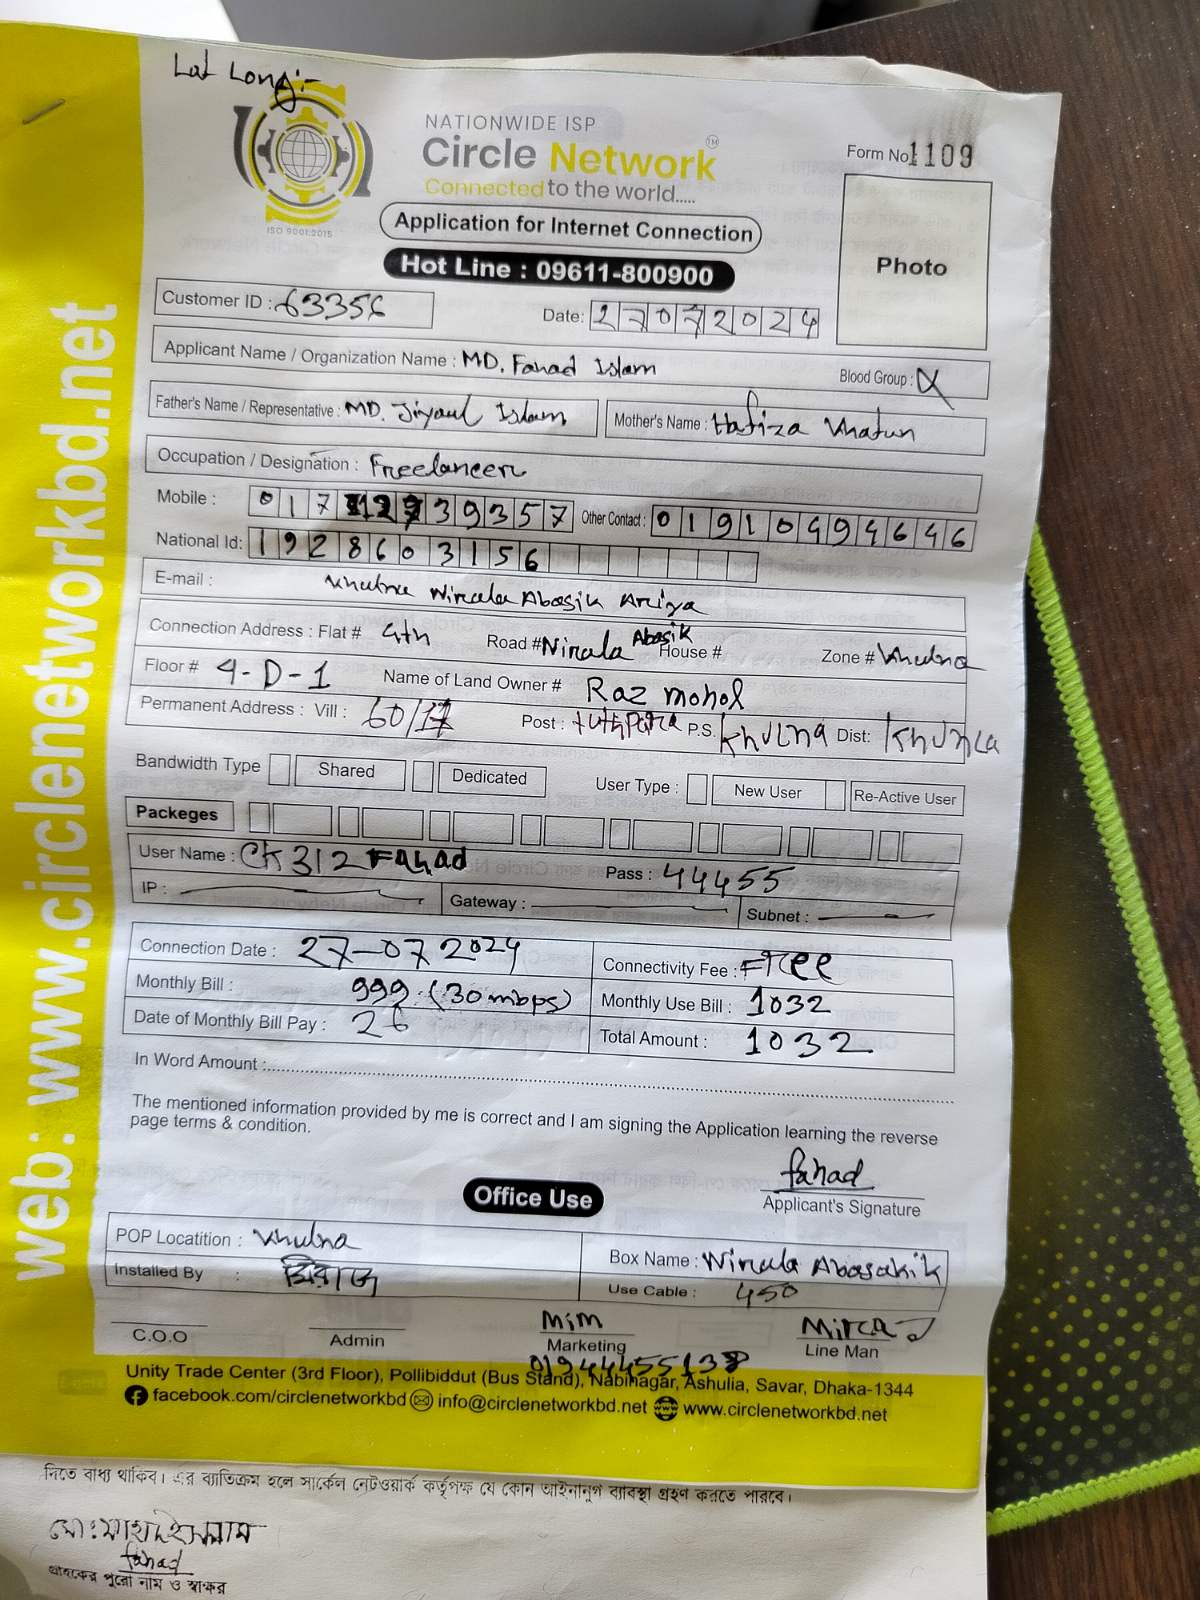 Lat Long:-
NATIONWIDE ISP
Circle Network™
Connected to the world.....
ISO 9001:2015
Form No 1109
Application for Internet Connection
Photo
Hot Line : 09611-800900
Customer ID : 63356
Date: 27072024
Applicant Name / Organization Name : MD. Fahad Islam
Blood Group :
Father's Name / Representative : MD. Jiyaul Islam
Mother's Name : Hafiza Khatun
Occupation / Designation : Freelancer
Mobile : 01712739357
Other Contact : 01910494646
National Id: 1928603156
E-mail : Khulna Nirala Abasik Ariya
Connection Address : Flat # 4th Road # Nirala Abasik House # Zone # Khulna
Floor # 4-D-1 Name of Land Owner # Raz mohol
Permanent Address : Vill : 60/ Post : tuthpara P.S. Khulna Dist: Khulna
Bandwidth Type Shared Dedicated User Type : New User Re-Active User
Packeges
User Name : CK312Fahad Pass : 44455
IP : Gateway : Subnet :
Connection Date : 27-07 2024 Connectivity Fee : Free
Monthly Bill : 999 (30 mbps) Monthly Use Bill : 1032
Date of Monthly Bill Pay : 26 Total Amount : 1032
In Word Amount :
The mentioned information provided by me is correct and I am signing the Application learning the reverse
page terms & condition.
fahad
Applicant's Signature
Office Use
POP Locatition : Khulna Box Name : Nirala Abasakik
Installed By : মিরাজ Use Cable : 450
Mim Miraj
C.O.O Admin Marketing Line Man
01944455138
Unity Trade Center (3rd Floor), Pollibiddut (Bus Stand), Nabinagar, Ashulia, Savar, Dhaka-1344
facebook.com/circlenetworkbd info@circlenetworkbd.net www.circlenetworkbd.net
web: www.circlenetworkbd.net
দিতে বাধ্য থাকিব। এর ব্যতিক্রম হলে সার্কেল নেটওয়ার্ক কর্তৃপক্ষ যে কোন আইনানুগ ব্যবস্থা গ্রহণ করতে পারবে।
মোঃ ফাহাদ ইসলাম
fahad
গ্রাহকের পুরো নাম ও স্বাক্ষর